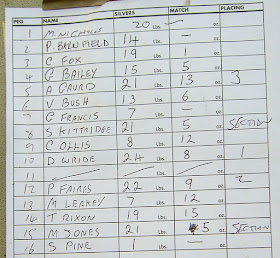 PEG NAME SILVERS MATCH PLACING
1 M NICHOLLS 20 Lbs. — oz.
2 P BARNFIELD 14 Lbs. — oz.
3 C FOX 19 Lbs. 1 oz.
4 G BAILEY 15 Lbs. 5 oz.
5 A GAURD 21 Lbs. 13 oz. 3
6 V BUSH 13 Lbs. 6 oz.
7 G FRANCIS 7 Lbs. — oz.
8 S KITTRIDGE 21 Lbs. 5 oz. SECTION
9 C OLLIS 8 Lbs. 12 oz.
10 D WRIDE 24 Lbs. 8 oz. 1
11 Lbs. oz.
12 P FAIRES 22 Lbs. 9 oz. 2
13 M LEAKEY 7 Lbs. 12 oz.
14 T RIXON 19 Lbs. 15 oz.
15 M JONES 21 Lbs. 5 oz. SECTION
16 S PINE 1 Lbs. — oz.